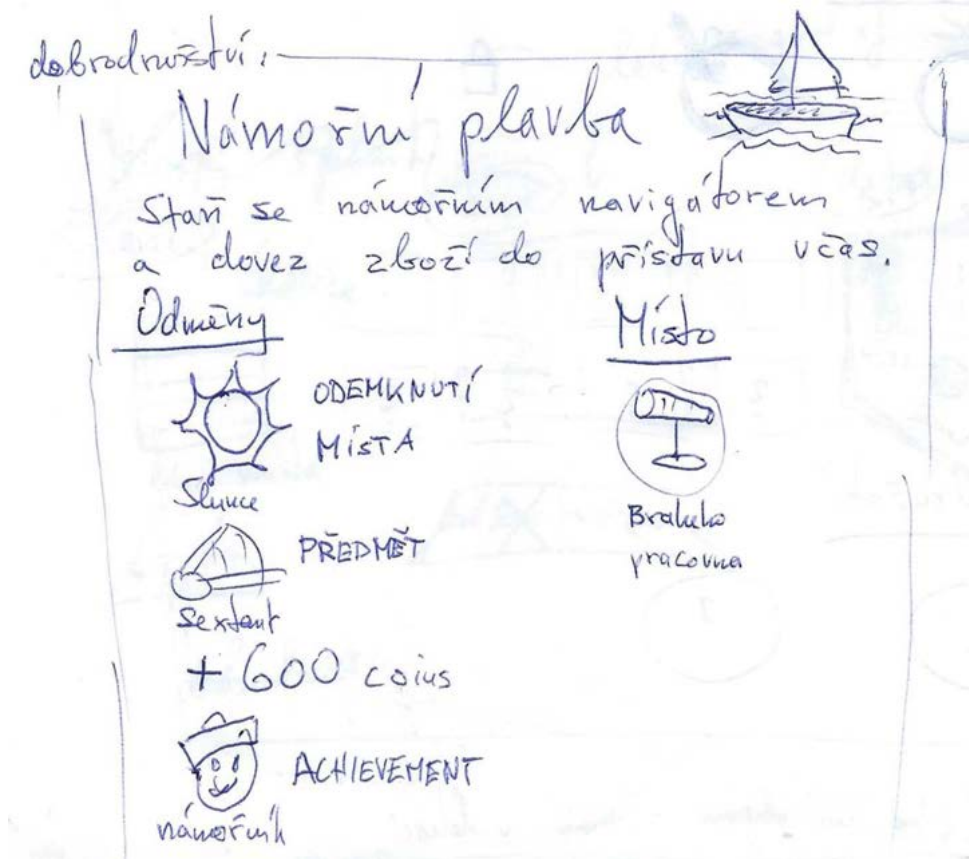 dobrodružství:
Námořní plavba
Staň se námořním navigátorem
a dovez zboží do přístavu včas.
Odměny
Místo
ODEMKNUTÍ
MÍSTA
Slunce
PŘEDMĚT
Sextant
+ 600 coins
ACHIEVEMENT
námořník
pracovna